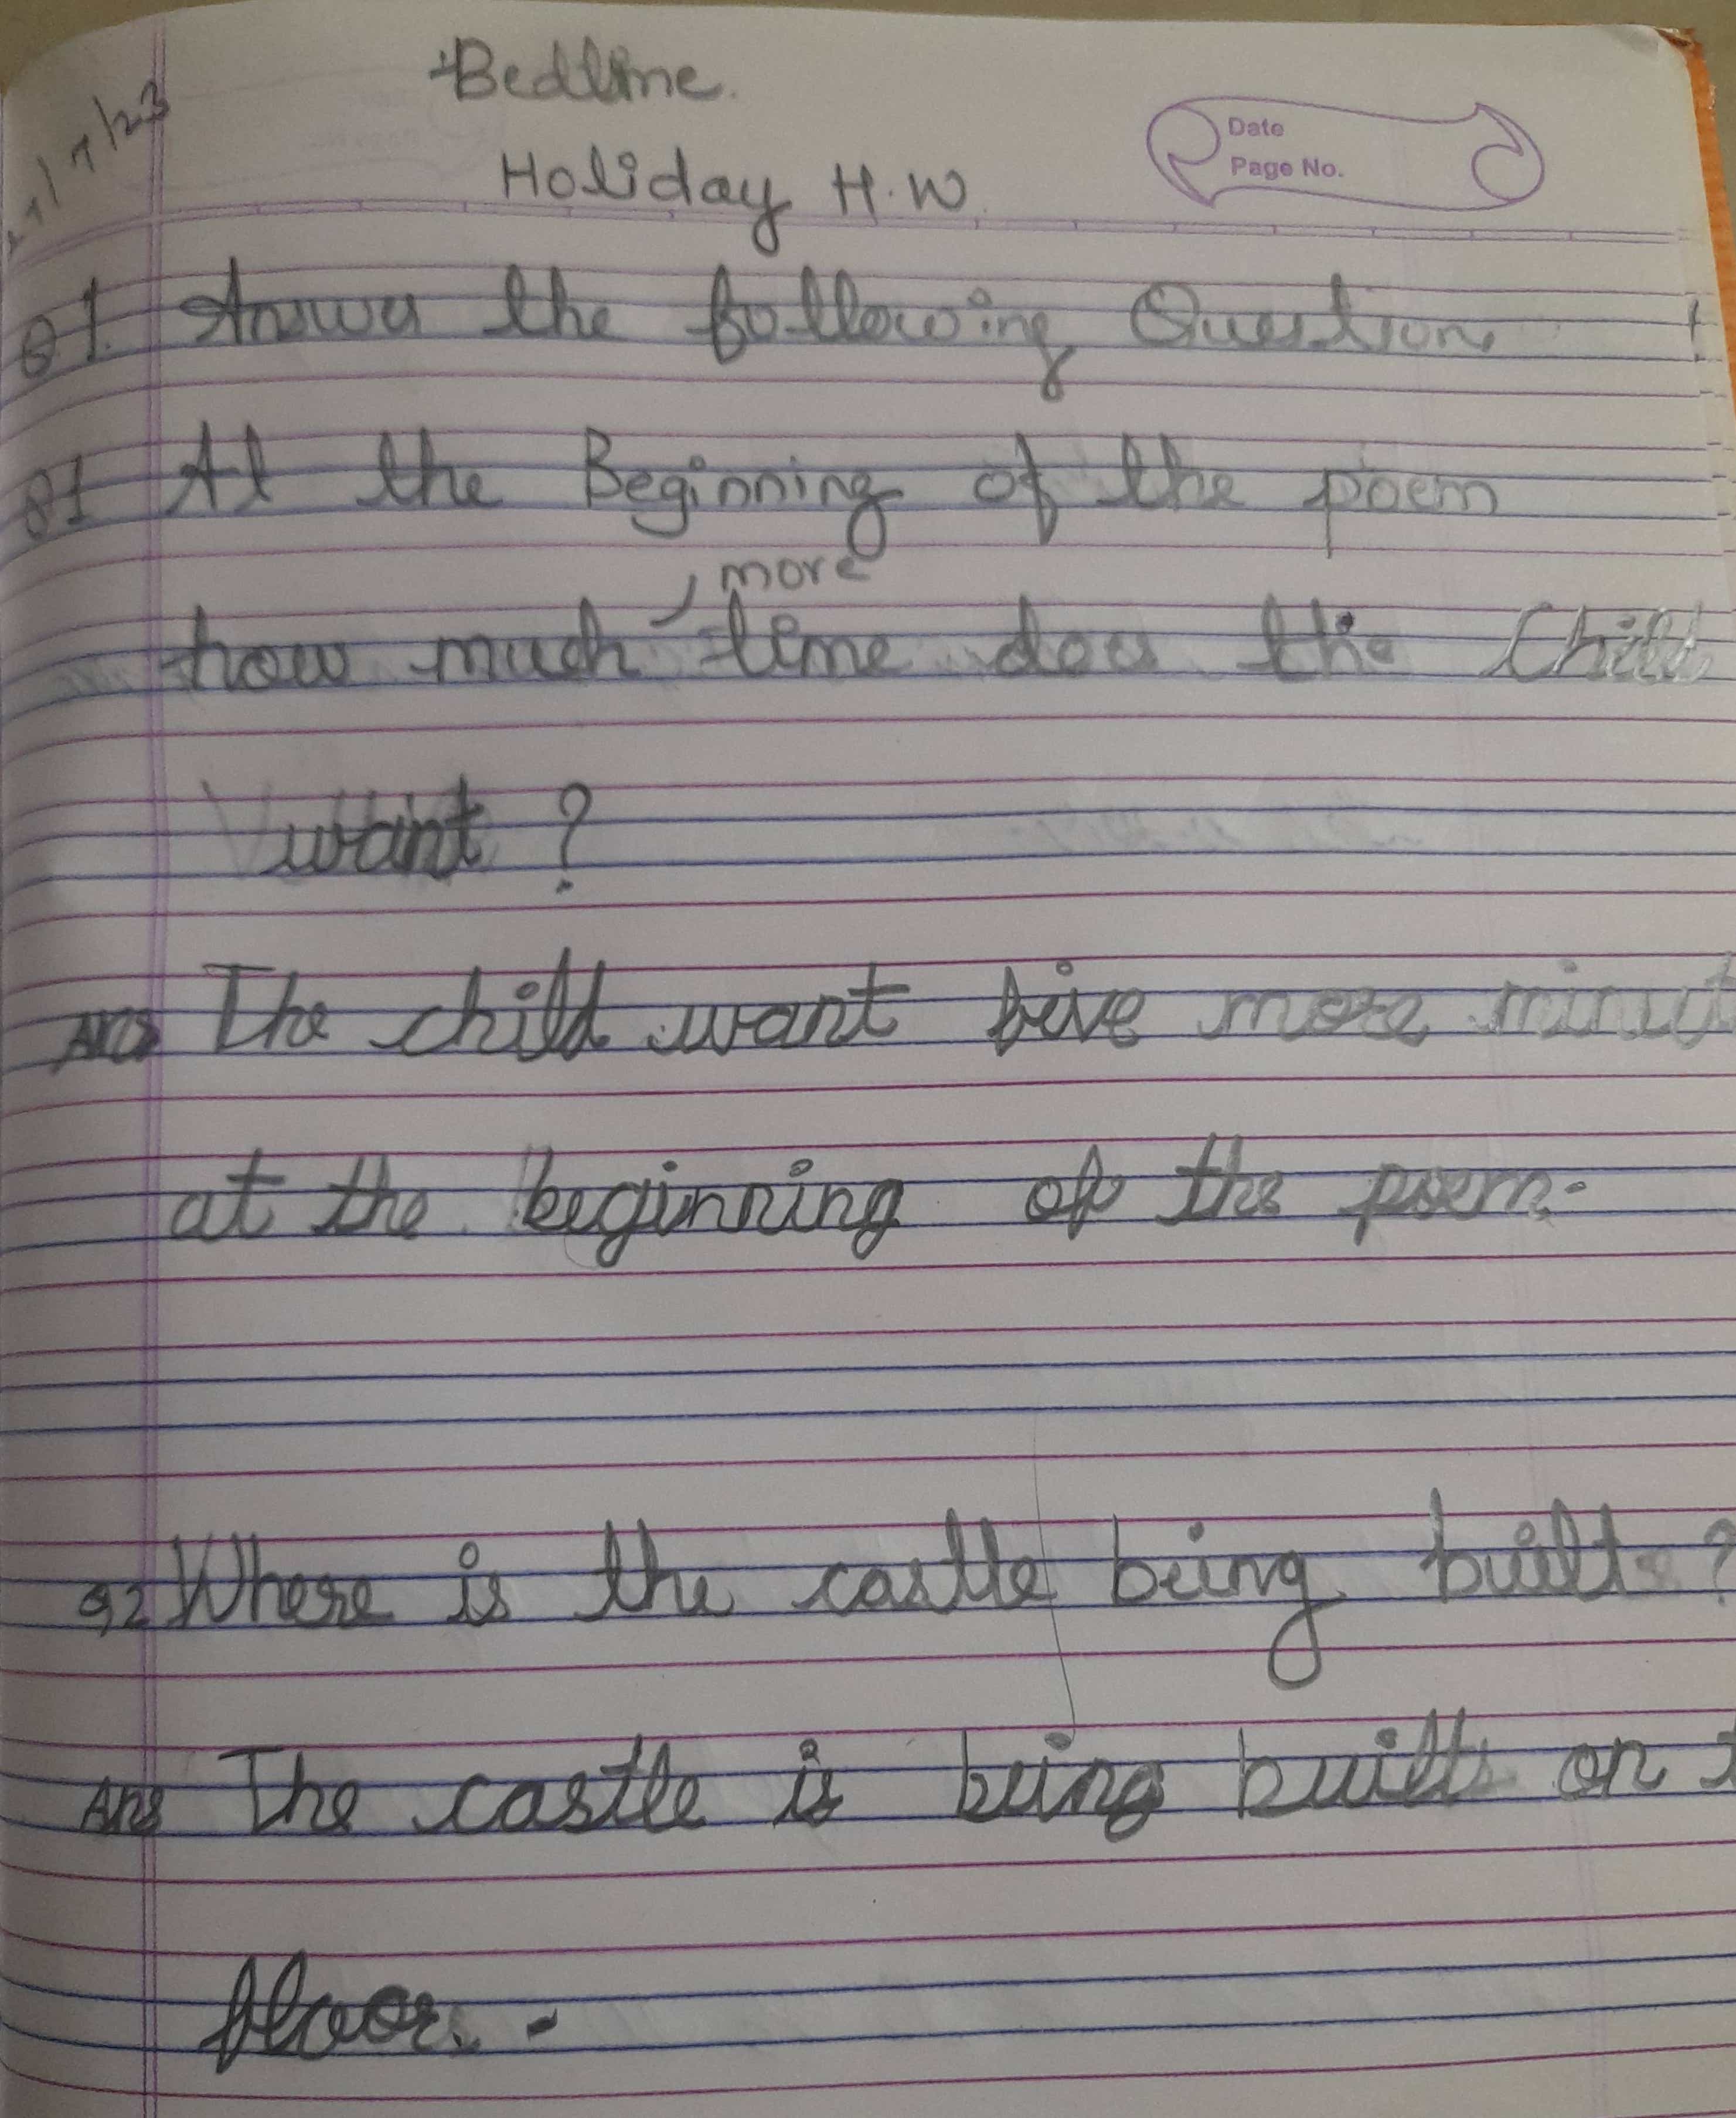 Bedtime.
Holiday H.W.
Date
Page No.
Q1. Answer the following Question
Q1 At the Beginning of the poem
more
how much time does the Child
want ?
Ans The child want five more minut
at the beginning of the poem.
Q2 Where is the castle being built ?
Ans The castle is being built on
floor.